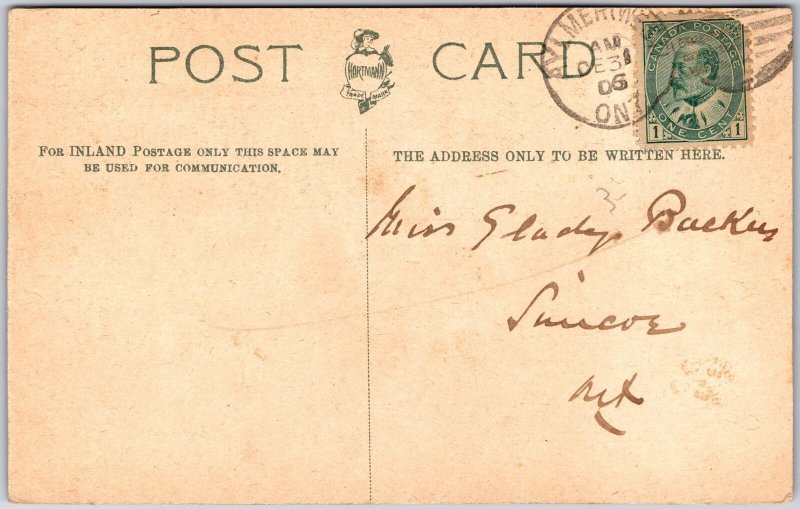 POST CARD
HARTMANN
TRADE MARK
PALMERSTON
AM
DE 31
06
ONT
CANADA POSTAGE
1 ONE CENT 1
FOR INLAND POSTAGE ONLY THIS SPACE MAY
BE USED FOR COMMUNICATION.
THE ADDRESS ONLY TO BE WRITTEN HERE.
3
Miss Gladys Backus
Simcoe
Ont